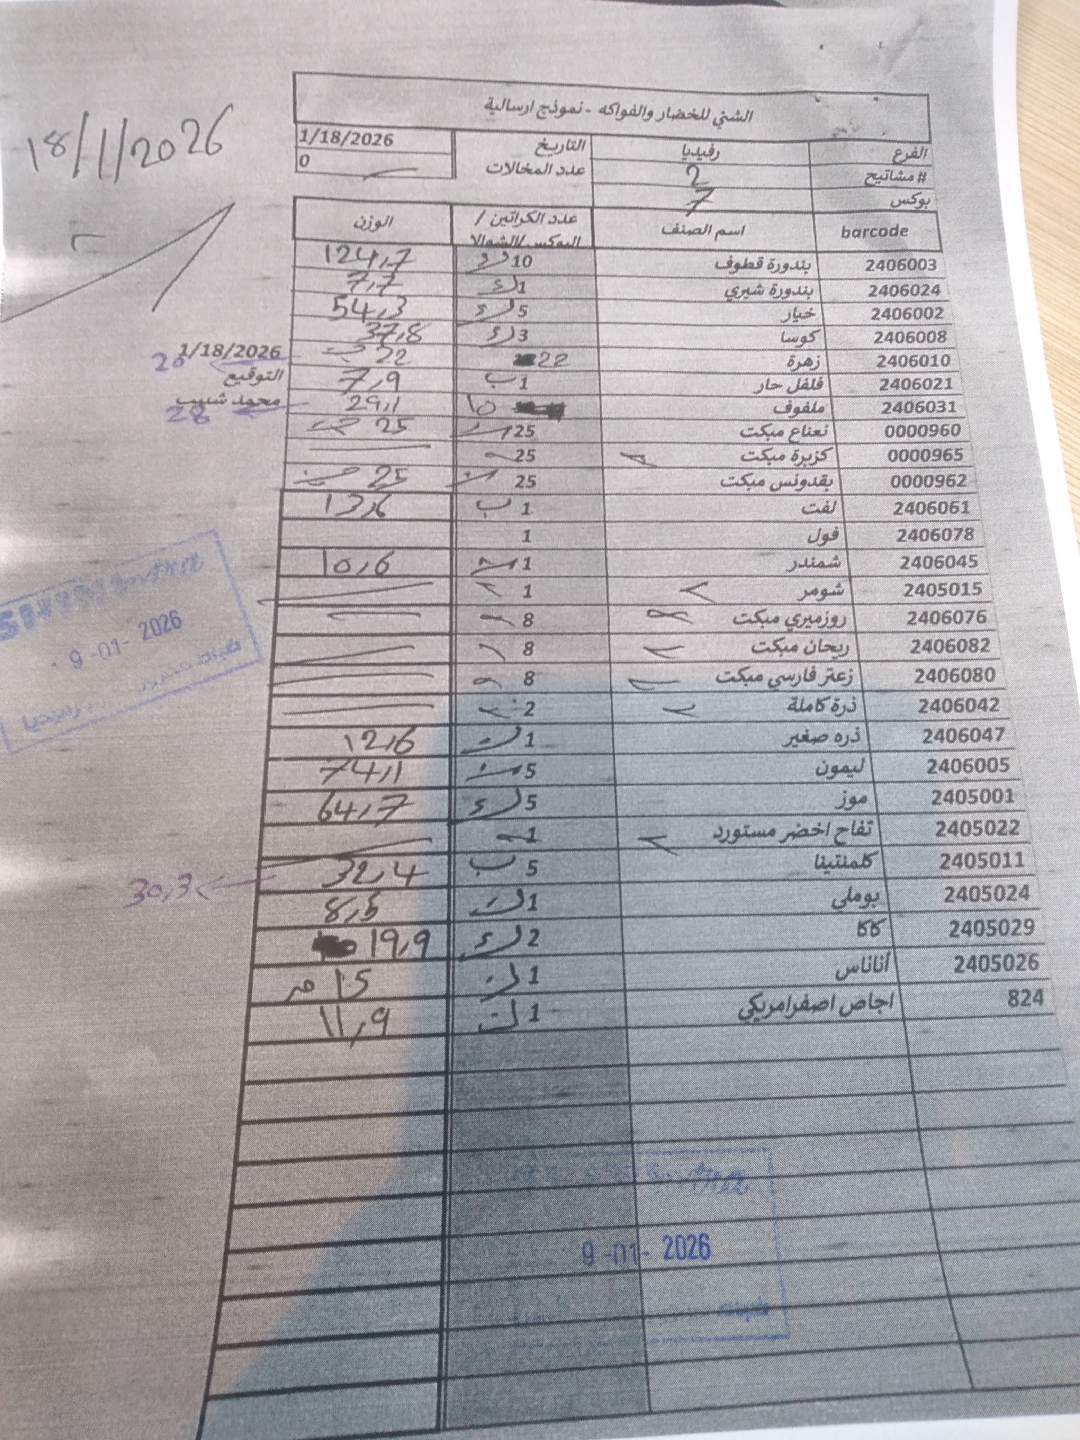 18/1/2026
الشني للخضار والفواكه - نموذج ارسالية
الفرع رفيديا التاريخ 1/18/2026
# مشاتيح 2 عدد المخالات 0
بوكس 7
barcode اسم الصنف عدد الكراتين / البوكس/الشوالا الوزن
2406003 بندورة قطوف 10 124,7
2406024 بندورة شيري 1 7,7
2406002 خيار 5 54,3
2406008 كوسا 3 37,8
2406010 زهرة 22 22 20
1/18/2026
التوقيع
محمد شبيب
2406021 فلفل حار 1 ب 7,9
2406031 ملفوف 10 29,1 28
0000960 نعناع مبكت 25 25
0000965 كزبرة مبكت 25
0000962 بقدونس مبكت 25 25
2406061 لفت 1 ب 13,6
2406078 فول 1
2406045 شمندر 1 10,6
2405015 شومر 1
2406076 روزميري مبكت 8
2406082 ريحان مبكت 8
2406080 زعتر فارسي مبكت 8
2406042 ذرة كاملة 2
2406047 ذره صغير 1 12,6
2406005 ليمون 5 74,1
2405001 موز 5 64,7
2405022 تفاح اخضر مستورد 1
2405011 كلمنتينا 5 ب 32,4 30,3
2405024 بوملي 1 8,5
2405029 كاكا 2 19,9
2405026 أناناس 1 15
824 اجاص اصفرامريكي 1 11,9
9-01-2026
9-01-2026